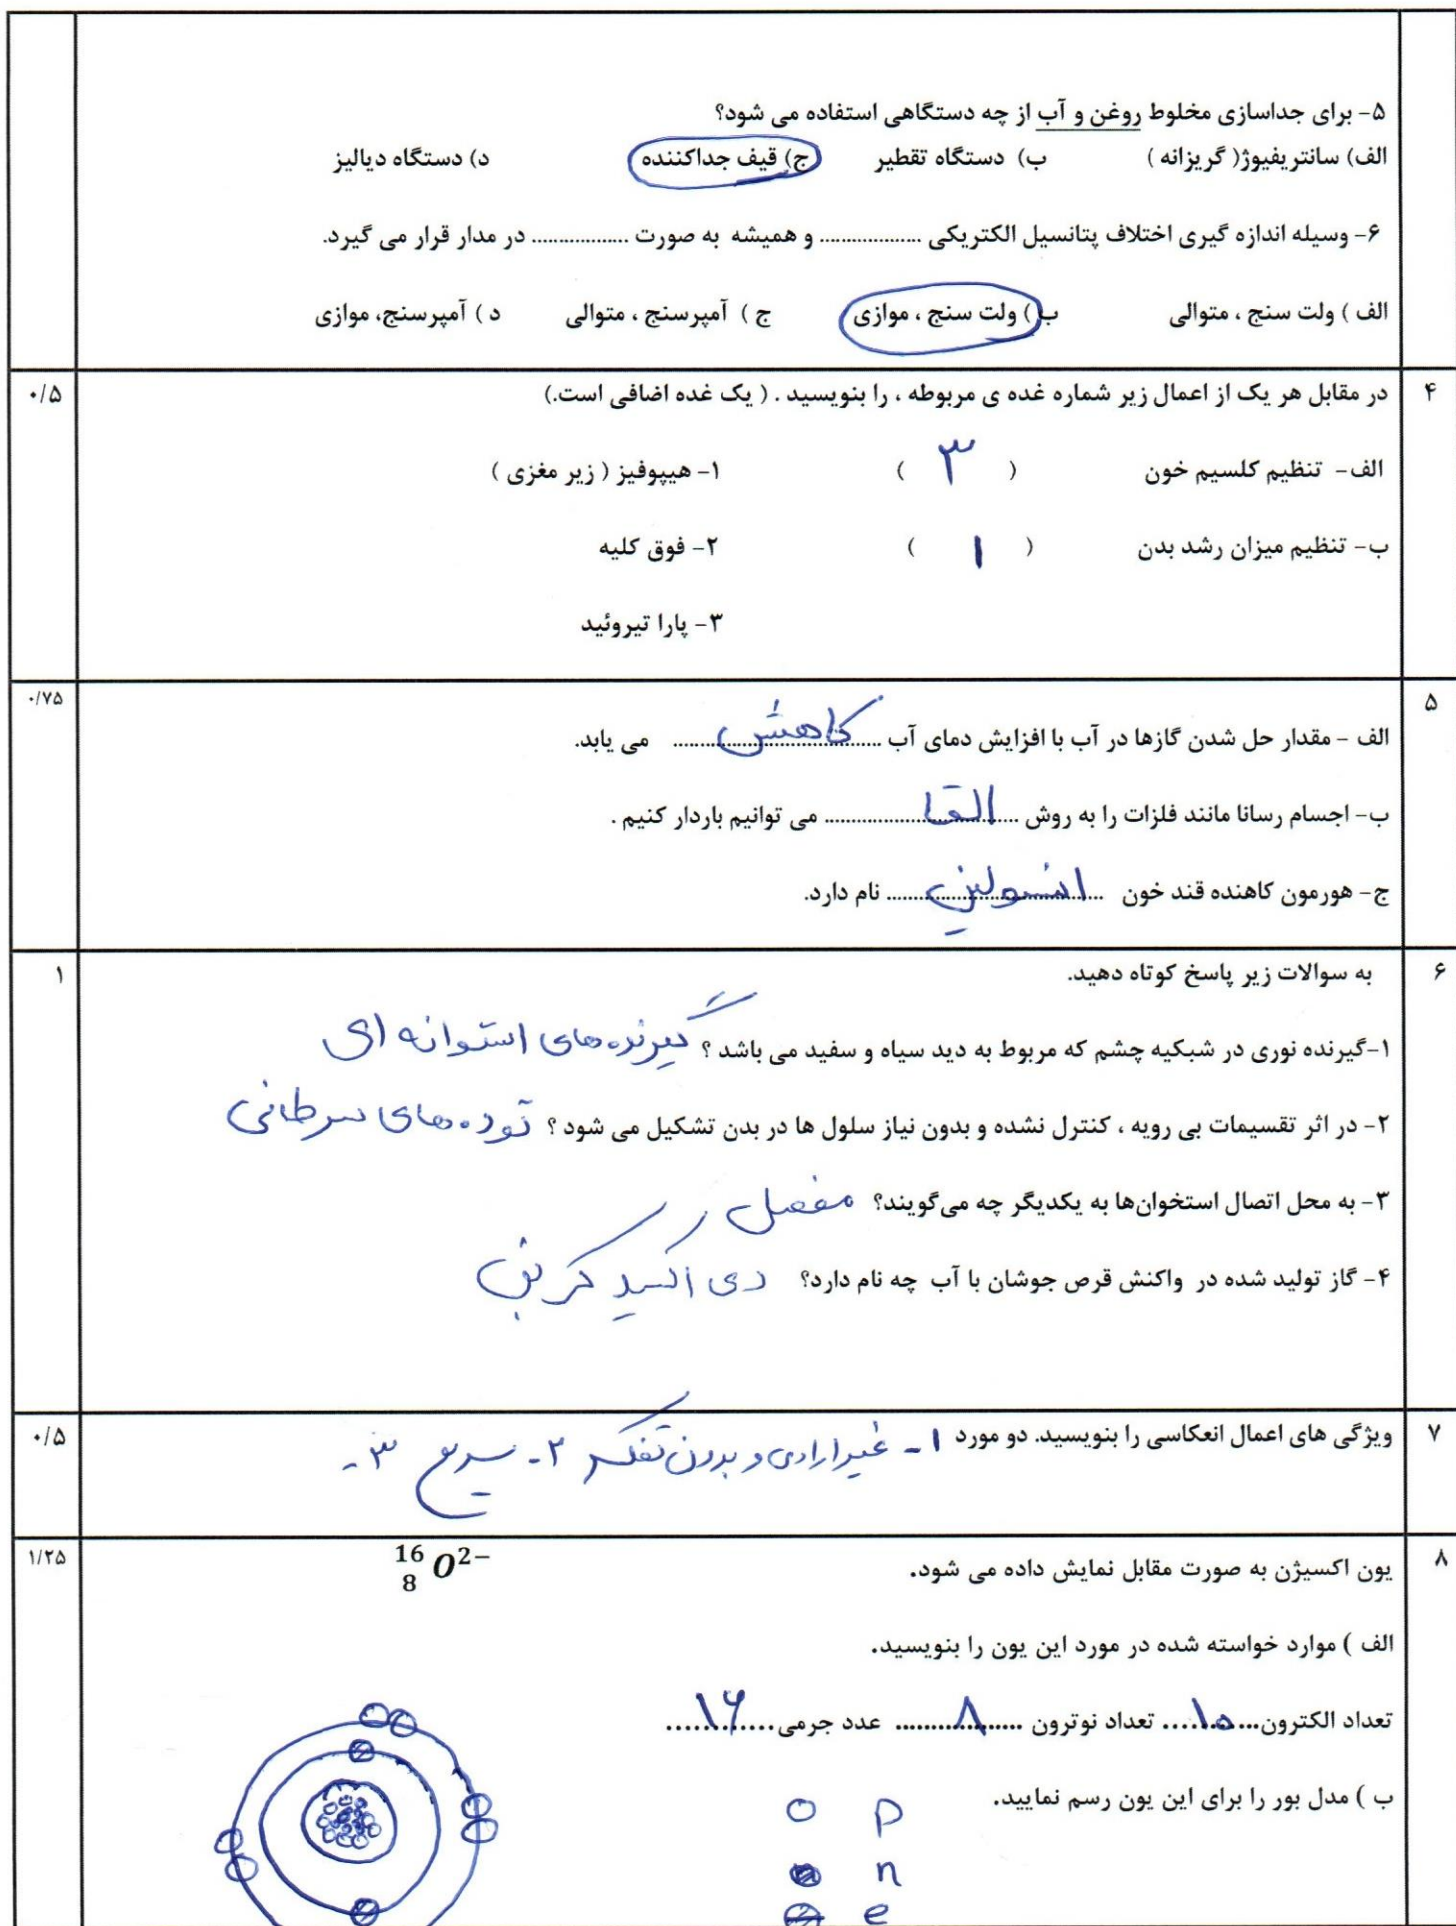 ۵- برای جداسازی مخلوط روغن و آب از چه دستگاهی استفاده می شود؟
الف) سانتریفیوژ( گریزانه ) ب) دستگاه تقطیر ج) قیف جداکننده د) دستگاه دیالیز
۶- وسیله اندازه گیری اختلاف پتانسیل الکتریکی .................. و همیشه به صورت .................. در مدار قرار می گیرد.
الف ) ولت سنج ، متوالی ب ) ولت سنج ، موازی ج ) آمپرسنج ، متوالی د ) آمپرسنج، موازی
۴ در مقابل هر یک از اعمال زیر شماره غده ی مربوطه ، را بنویسید . ( یک غده اضافی است.) ۰/۵
الف- تنظیم کلسیم خون ( ۳ ) ۱- هیپوفیز ( زیر مغزی )
ب- تنظیم میزان رشد بدن ( ۱ ) ۲- فوق کلیه
۳- پارا تیروئید
۵ ۰/۷۵
الف - مقدار حل شدن گازها در آب با افزایش دمای آب کاهش می یابد.
ب- اجسام رسانا مانند فلزات را به روش القا می توانیم باردار کنیم .
ج- هورمون کاهنده قند خون انسولین نام دارد.
۶ به سوالات زیر پاسخ کوتاه دهید. ۱
۱-گیرنده نوری در شبکیه چشم که مربوط به دید سیاه و سفید می باشد ؟ گیرنده های استوانه ای
۲- در اثر تقسیمات بی رویه ، کنترل نشده و بدون نیاز سلول ها در بدن تشکیل می شود ؟ توده های سرطانی
۳- به محل اتصال استخوان‌ها به یکدیگر چه می‌گویند؟ مفصل
۴- گاز تولید شده در واکنش قرص جوشان با آب چه نام دارد؟ دی اکسید کربن
۷ ویژگی های اعمال انعکاسی را بنویسید. دو مورد ۱- غیرارادی و بدون تفکر ۲- سریع ۳- ۰/۵
۸ یون اکسیژن به صورت مقابل نمایش داده می شود. ¹⁶₈O²⁻ ۱/۲۵
الف ) موارد خواسته شده در مورد این یون را بنویسید.
تعداد الکترون...۱۰... تعداد نوترون ...۸... عدد جرمی...۱۶...
ب ) مدل بور را برای این یون رسم نمایید.
p
n
e